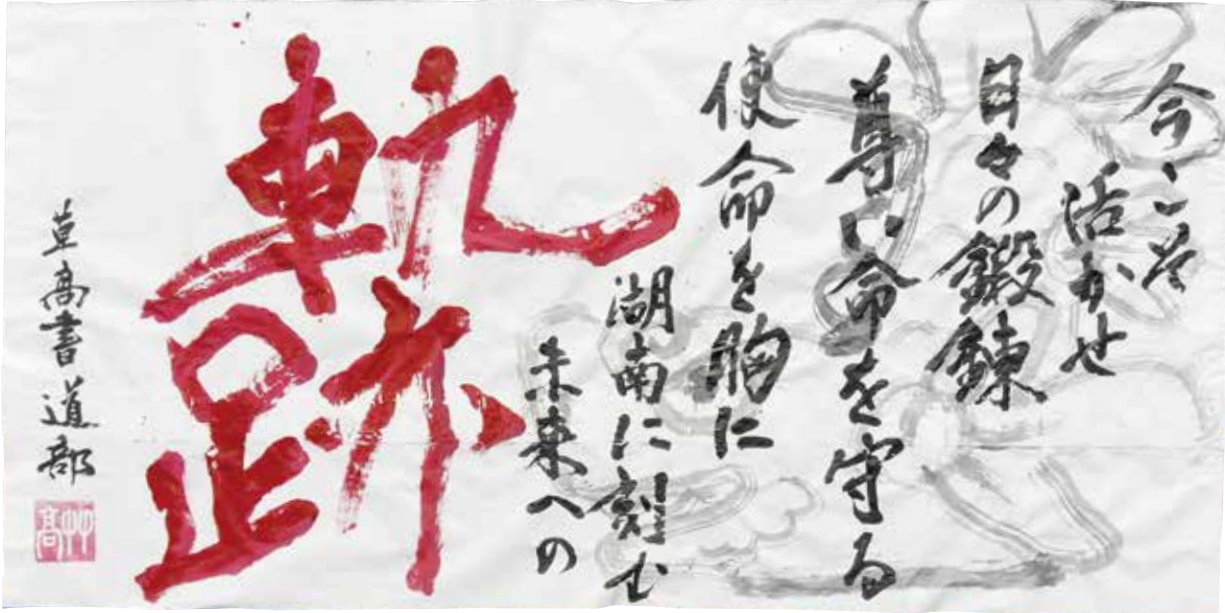 今こそ
活かせ
日々の鍛錬
尊い命を守る
使命を胸に
湖南に刻む
未来への
軌跡
草高書道部
艸高